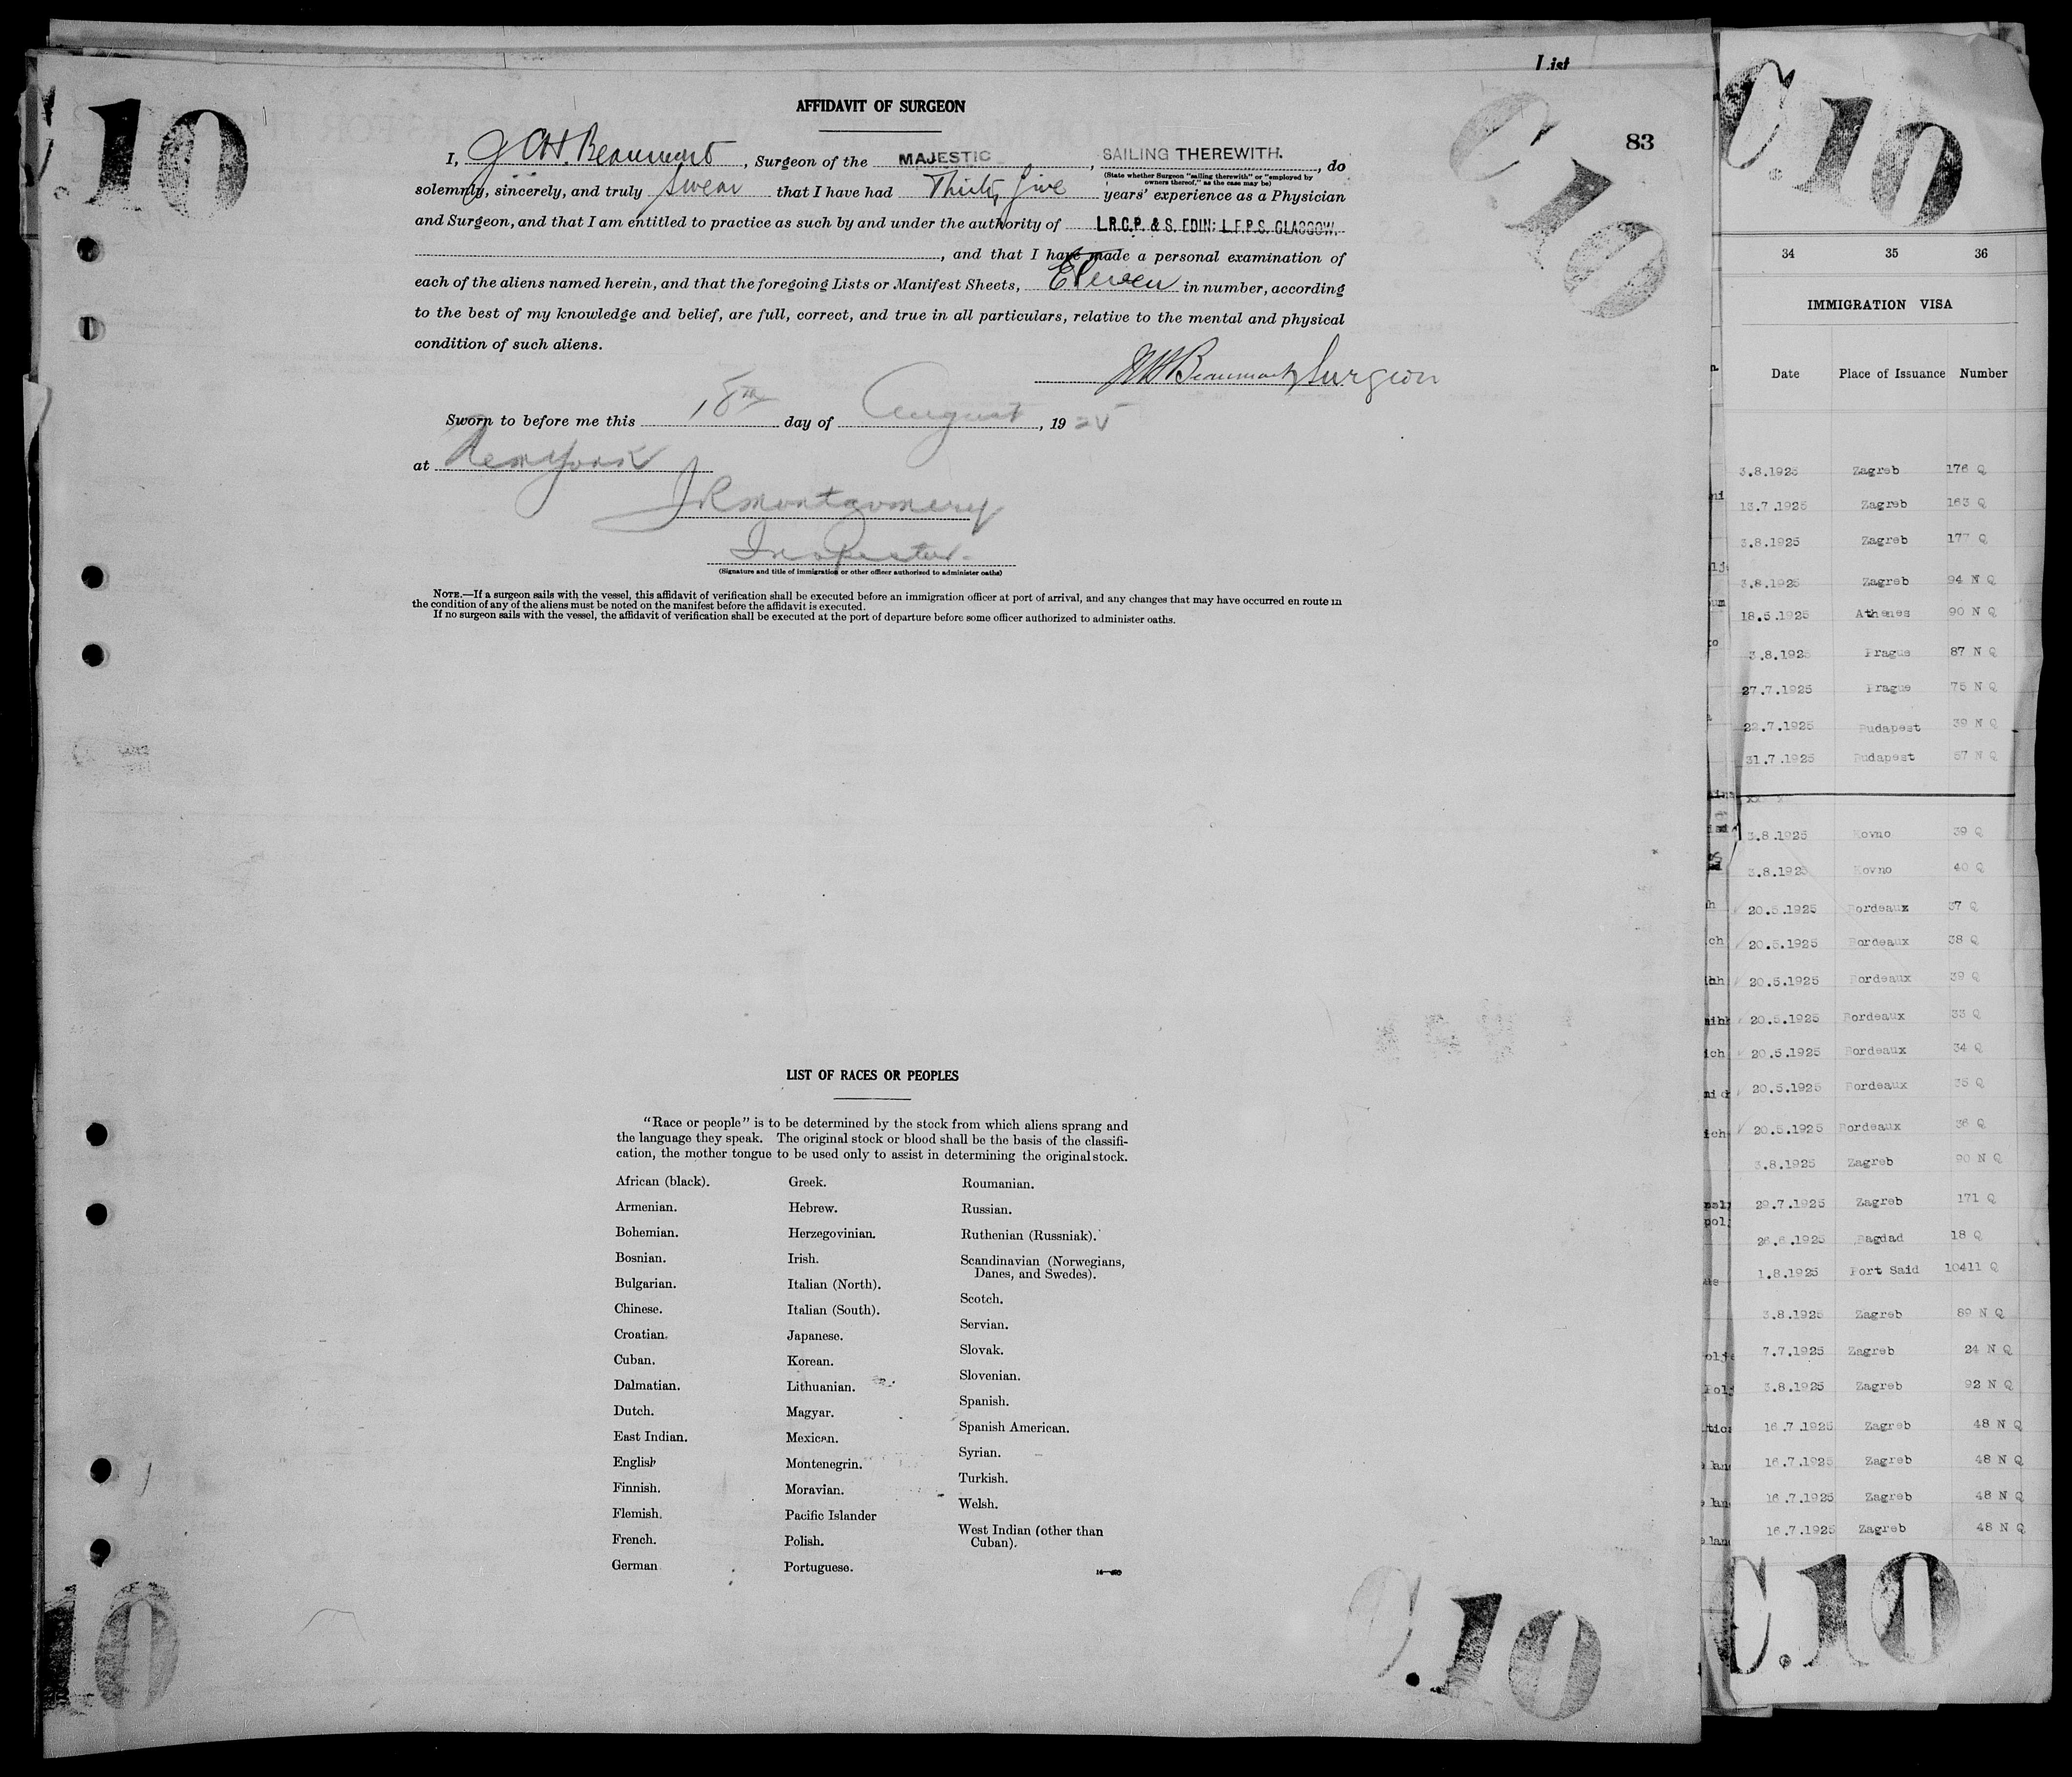 List
C.10
83
AFFIDAVIT OF SURGEON
I, J C H. Beaumont, Surgeon of the MAJESTIC, SAILING THEREWITH., do
(State whether Surgeon "sailing therewith" or "employed by
owners thereof," as the case may be)
solemnly, sincerely, and truly swear that I have had Thirty five years' experience as a Physician
and Surgeon, and that I am entitled to practice as such by and under the authority of L.R.C.P. & S. EDIN: L.F.P.S. GLASGOW.
, and that I have made a personal examination of
each of the aliens named herein, and that the foregoing Lists or Manifest Sheets, Eleven in number, according
to the best of my knowledge and belief, are full, correct, and true in all particulars, relative to the mental and physical
condition of such aliens.
Beaumont Surgeon
Sworn to before me this 18th day of August, 1925
at New York
J R Montgomery
Inspector.
(Signature and title of immigration or other officer authorized to administer oaths)
NOTE.—If a surgeon sails with the vessel, this affidavit of verification shall be executed before an immigration officer at port of arrival, and any changes that may have occurred en route in
the condition of any of the aliens must be noted on the manifest before the affidavit is executed.
If no surgeon sails with the vessel, the affidavit of verification shall be executed at the port of departure before some officer authorized to administer oaths.
LIST OF RACES OR PEOPLES
"Race or people" is to be determined by the stock from which aliens sprang and
the language they speak. The original stock or blood shall be the basis of the classifi-
cation, the mother tongue to be used only to assist in determining the original stock.
African (black).
Armenian.
Bohemian.
Bosnian.
Bulgarian.
Chinese.
Croatian.
Cuban.
Dalmatian.
Dutch.
East Indian.
English
Finnish.
Flemish.
French.
German
Greek.
Hebrew.
Herzegovinian.
Irish.
Italian (North).
Italian (South).
Japanese.
Korean.
Lithuanian.
Magyar.
Mexican.
Montenegrin.
Moravian.
Pacific Islander
Polish.
Portuguese.
Roumanian.
Russian.
Ruthenian (Russniak).
Scandinavian (Norwegians,
Danes, and Swedes).
Scotch.
Servian.
Slovak.
Slovenian.
Spanish.
Spanish American.
Syrian.
Turkish.
Welsh.
West Indian (other than
Cuban).
10
C.10
C.10
34 35 36
IMMIGRATION VISA
Date Place of Issuance Number
3.8.1925 Zagreb 176 Q
13.7.1925 Zagreb 163 Q
3.8.1925 Zagreb 177 Q
3.8.1925 Zagreb 94 N Q
18.5.1925 Athenes 90 N Q
3.8.1925 Prague 87 N Q
27.7.1925 Prague 75 N Q
22.7.1925 Budapest 39 N Q
31.7.1925 Budapest 57 N Q
3.8.1925 Kovno 39 Q
3.8.1925 Kovno 40 Q
20.5.1925 Bordeaux 37 Q
20.5.1925 Bordeaux 38 Q
20.5.1925 Bordeaux 39 Q
20.5.1925 Bordeaux 33 Q
20.5.1925 Bordeaux 34 Q
20.5.1925 Bordeaux 35 Q
20.5.1925 Bordeaux 36 Q
3.8.1925 Zagreb 90 N Q
29.7.1925 Zagreb 171 Q
26.6.1925 Bagdad 18 Q
1.8.1925 Port Said 10411 Q
3.8.1925 Zagreb 89 N Q
7.7.1925 Zagreb 24 N Q
3.8.1925 Zagreb 92 N Q
16.7.1925 Zagreb 48 N Q
16.7.1925 Zagreb 48 N Q
16.7.1925 Zagreb 48 N Q
16.7.1925 Zagreb 48 N Q
C.10